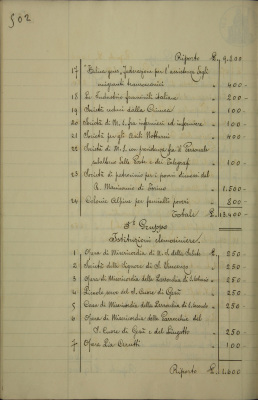 502
Riporto £. 9.200
17 "Italica gens", Federazione per l'assistenza degli
migranti transoceanici " 400 -
18 Le Industrie femminili italiane " 200 -
19 Società reduci dalla Crimea " 100 -
20 Società di M. S. fra infermieri ed infermiere " 100 -
21 Società per gli Asili Notturni " 400 -
22 Società di M. S. con presidenza fra il Personale
subalterno delle Poste e dei Telegrafi " 100 -
23 Società di patrocinio per i poveri dimessi dal
R. Manicomio di Torino " 1.500 -
24 Colonie Alpine per fanciulle povere " 800 -
Totale £. 13.400 -
3° Gruppo
Istituzioni elemosiniere.
1 Opera di Misericordia di N. S. della Salute £. 250
2 Società delle Signore di S. Vincenzo " 250
3 Opera di Misericordia della Parrocchia di " 250
4 del S. Cuore di Gesù " 250
5 Casa di Misericordia della Parrocchia di " 250
6 Opera di Misericordia delle Parrocchie del
S. Cuore di Gesù e del Lingotto " 250
7 Opera Pia Cerutti " 100
Riporto £. 1.600